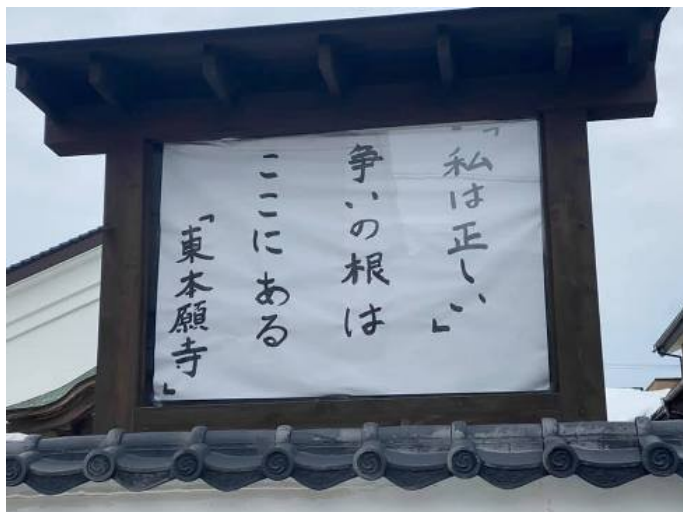 「私は正しい」
争いの根は
ここにある
「東本願寺」